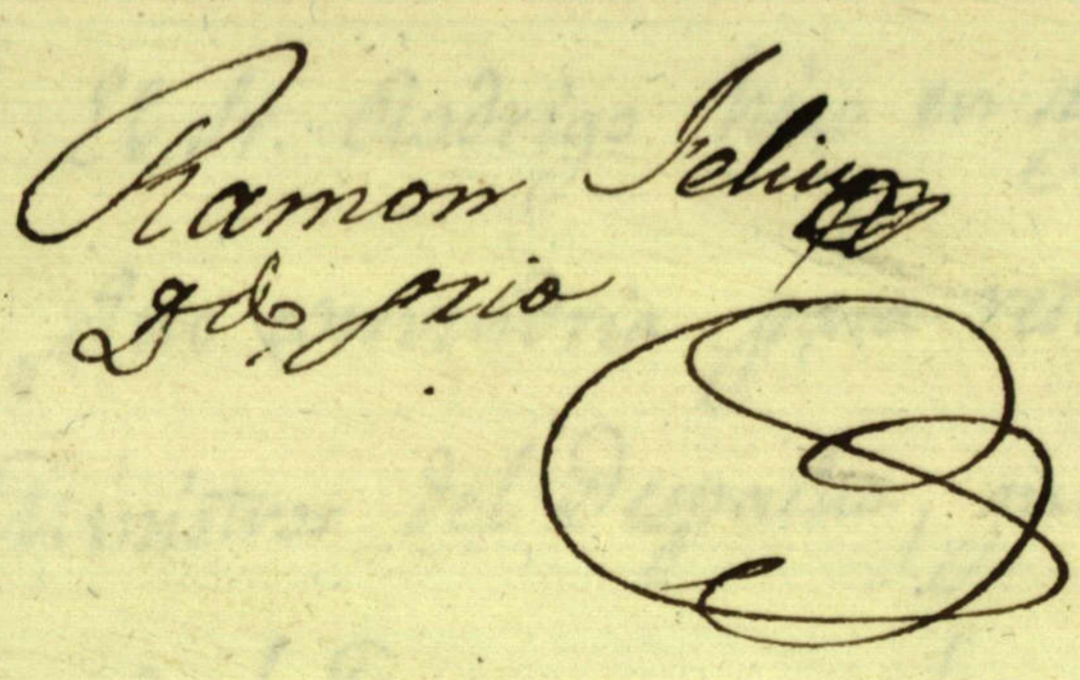 Ramon Feliu
D.r de srio